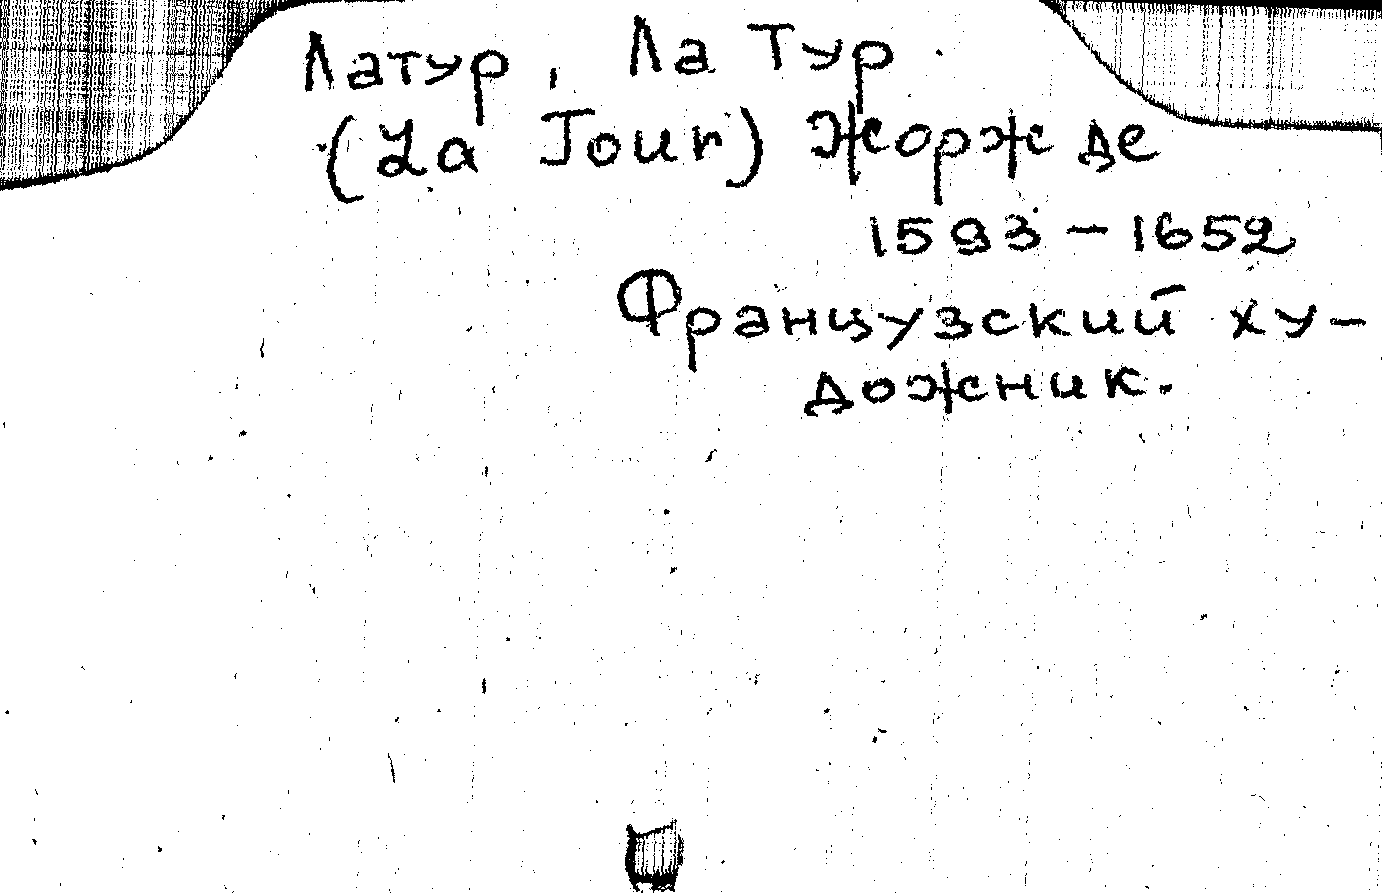 Латур, Ла Тур.
(La Tour) Жорж де
1593 - 1652
Французский ху-
дожник.